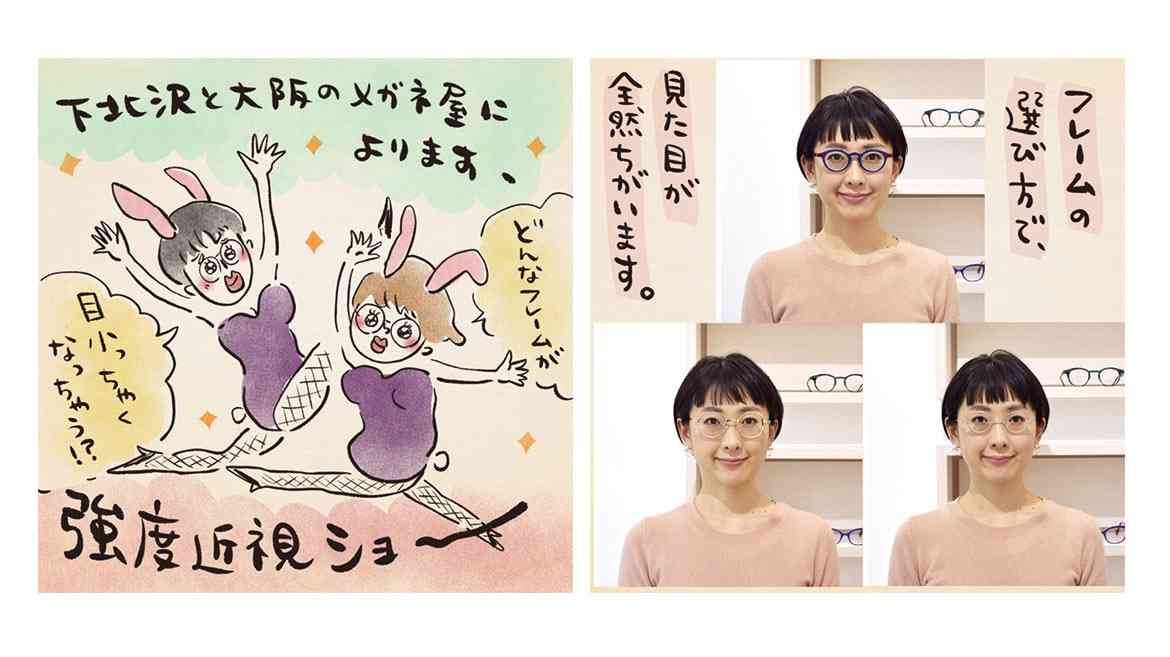 下北沢と大阪のメガネ屋に
よります、
どんなフレームが
目小っちゃく
なっちゃう!?
強度近視ショー
フレームの
選び方で、
見た目が
全然ちがいます。